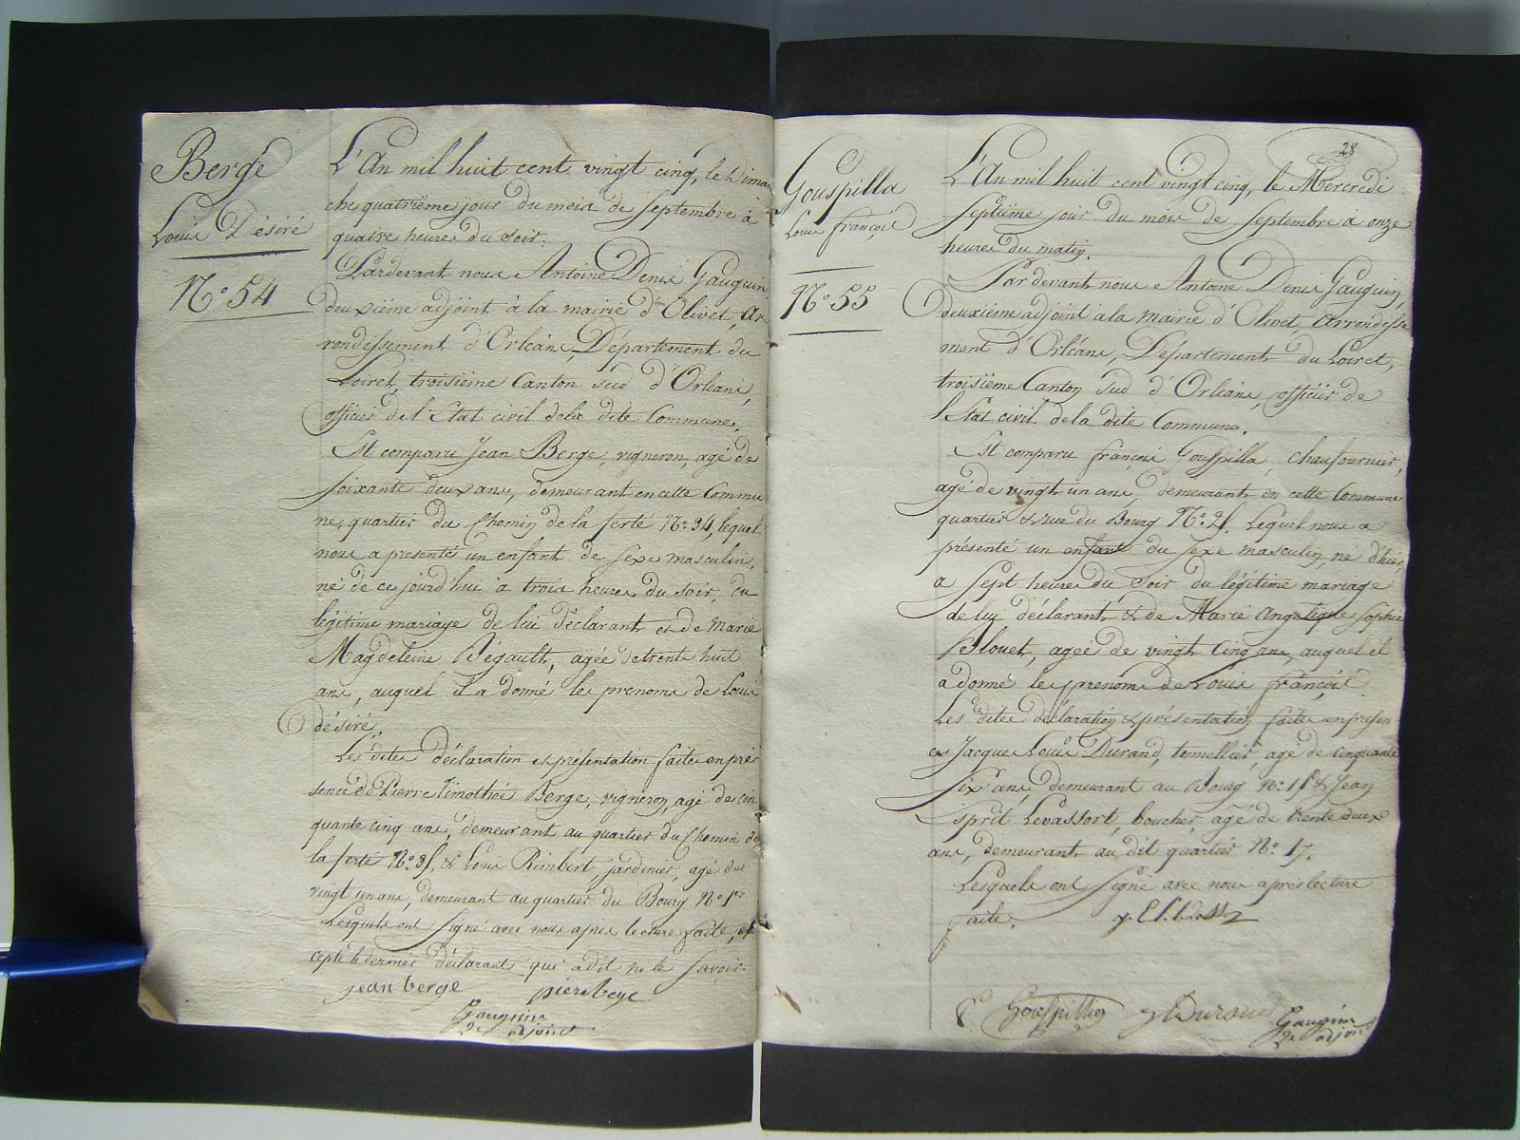 Berge
Louis Désiré
N.o 54
L'An mil huit cent vingt cinq, le Diman
che quatrième jour du mois de Septembre à
quatre heures du soir.
Pardevant nous Antoine Denis Gauguin
deuxième adjoint à la mairie d'Olivet, Ar
rondissement d'Orléans, Département du
Loiret, troisième Canton sud d'Orléans,
officier de l'Etat civil de la dite Commune.
Est comparu Jean Berge, vigneron, agé de
soixante deux ans, demeurant en cette Commu
ne, quartier du Chemin de la ferté N.o 34, lequel
nous a presenté un enfant de sexe masculin,
né de ce jourd'hui à trois heures du soir, du
légitime mariage de lui déclarant et de Marie
Magdeleine Bégault, agée de trente huit
ans, auquel il a donné les prenoms de Louis
désiré.
Les dites déclaration et présentation faites en pré
sence de Pierre Timothée Berge, vigneron, agé de cin
quante cinq ans, demeurant au quartier du Chemin de
la ferté N.o & Louis Rimbert, jardinier, agé de
vingt un ans, demeurant au quartier du Bourg N.o 1er
Lesquels ont signé avec nous apres lecture faite, ex
cepté le dernier déclarant qui a dit ne le savoir.
jean berge
piere berge
Gauguin
2e adjoint
28
Gouspilla
Louis françois
N.o 55
L'An mil huit cent vingt cinq, le Mercredi
septième jour du mois de Septembre à onze
heures du matin.
Par devant nous Antoine Denis Gauguin,
deuxième adjoint a la mairie d'Olivet, arrondisse
ment d'Orléans, Département du Loiret,
troisième Canton Sud d'Orléans, officier de
l'Etat civil de la dite Commune.
Est comparu françois Gouspilla, chaufournier,
agé de vingt un ans, demeurant en cette Commune
quartier & rue du Bourg N.o Lequel nous a
présenté un enfant du sexe masculin, né d'hier
a sept heures du soir du légitime mariage
de lui déclarant & de Marie angelique sophie
Blouet, agée de vingt cinq ans, auquel il
a donné les prenoms de Louis françois.
Les dites déclaration & présentation faites en presen
ce Jacques Louis Durand, tonnellier, agé de cinquante
six ans, demeurant au Bourg N.o & Jean
sprit Levassort, boucher, agé de trente deux
ans, demeurant au dit quartier N.o 17.
Lesquels ont signé avec nous après lecture
faite.
Gouspillia
Durand
Gauguin
2e adjoint